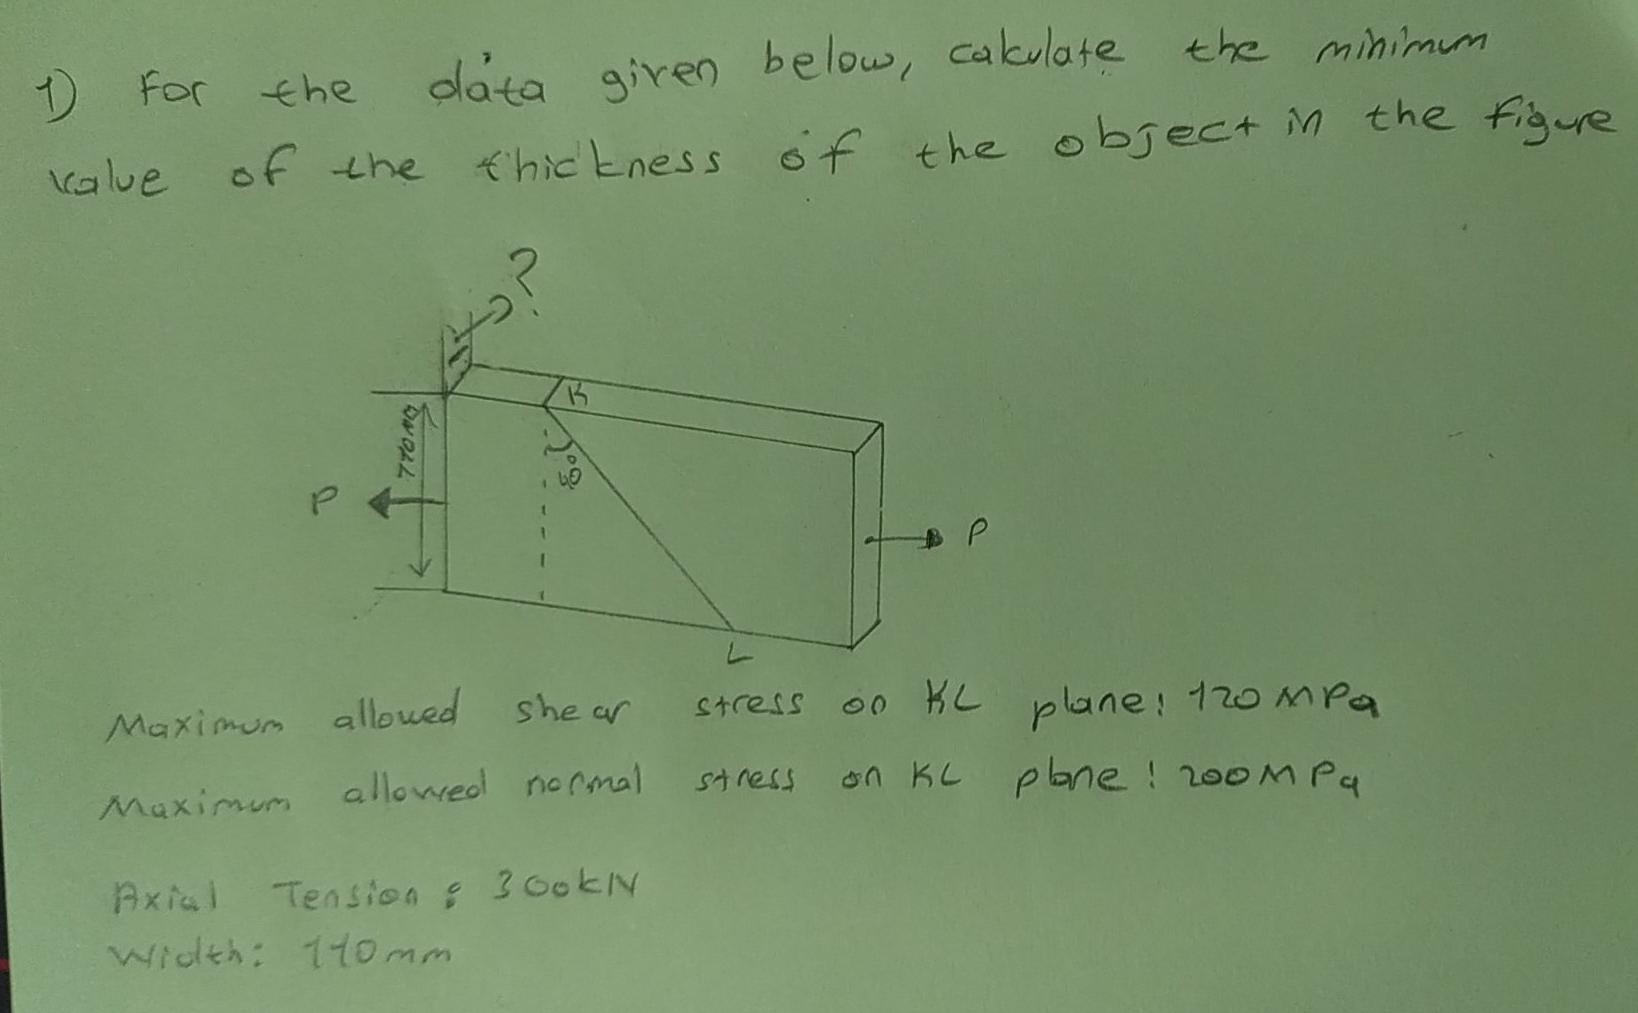 1) For the data given below, calculate the minimum
value of the thickness of the object in the figure
?
K
110mm
P
P
L
Maximum allowed shear stress on KL plane: 120 MPa
Maximum allowed normal stress on KL plane: 200 MPa
Axial Tension: 300kN
Width: 110mm